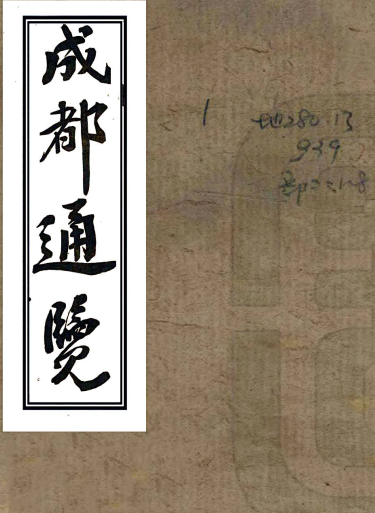 成都通覽
1
地280.13
939
部二:1-8